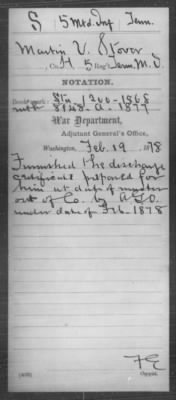 S 5 Mtd. Inf. Tenn.
Martin V. Stover
Co. H. 5 Reg't Tenn. M. I.
NOTATION.
Book mark: 1200-1868
with 8128. A. 1877
War Department,
Adjutant General's Office,
Washington, Feb. 19 1878
Furnished the discharge
certificate prepared for
him at date of muster
out of Co. by A.G.O.
under date of Feb. 1878
Copyist.